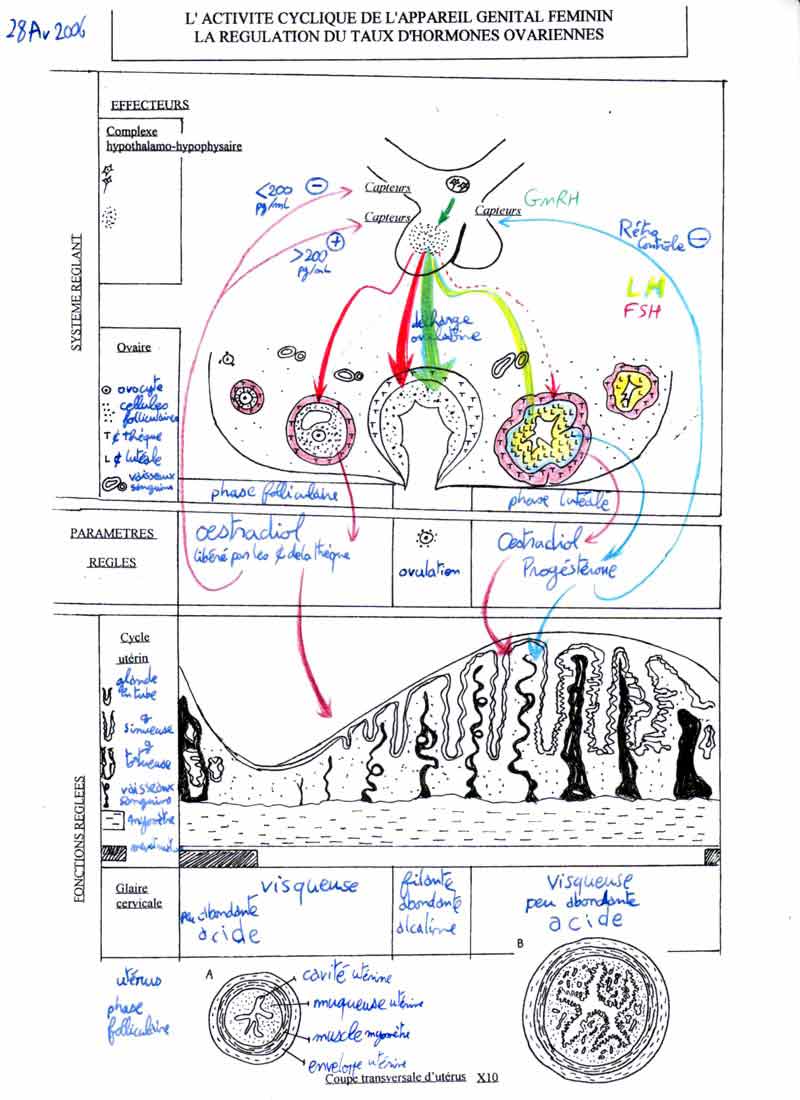 28 Av 2006
L' ACTIVITE CYCLIQUE DE L'APPAREIL GENITAL FEMININ
LA REGULATION DU TAUX D'HORMONES OVARIENNES
SYSTEME REGLANT
EFFECTEURS
Complexe
hypothalamo-hypophysaire
<200
pg/mL
-
Capteurs
Capteurs
Capteurs
GmRH
>200
pg/mL
+
Rétro
Contrôle
-
LH
FSH
décharge
ovulatoire
Ovaire
ovocyte
cellules
folliculaires
T ¢ thèque
L ¢ lutéale
vaisseaux
sanguins
phase folliculaire
phase lutéale
PARAMETRES
REGLES
oestradiol
libéré par les ¢ de la thèque
ovulation
Oestradiol
Progéstérone
FONCTIONS REGLEES
Cycle
utérin
glande
en tube
sinueuse
tortueuse
vaisseaux
sanguins
myomètre
Glaire
cervicale
visqueuse
peu abondante
acide
filante
abondante
alcaline
Visqueuse
peu abondante
acide
utérus
phase
folliculaire
A
cavité utérine
muqueuse utérine
muscle myomètre
enveloppe utérine
B
Coupe transversale d'utérus X10